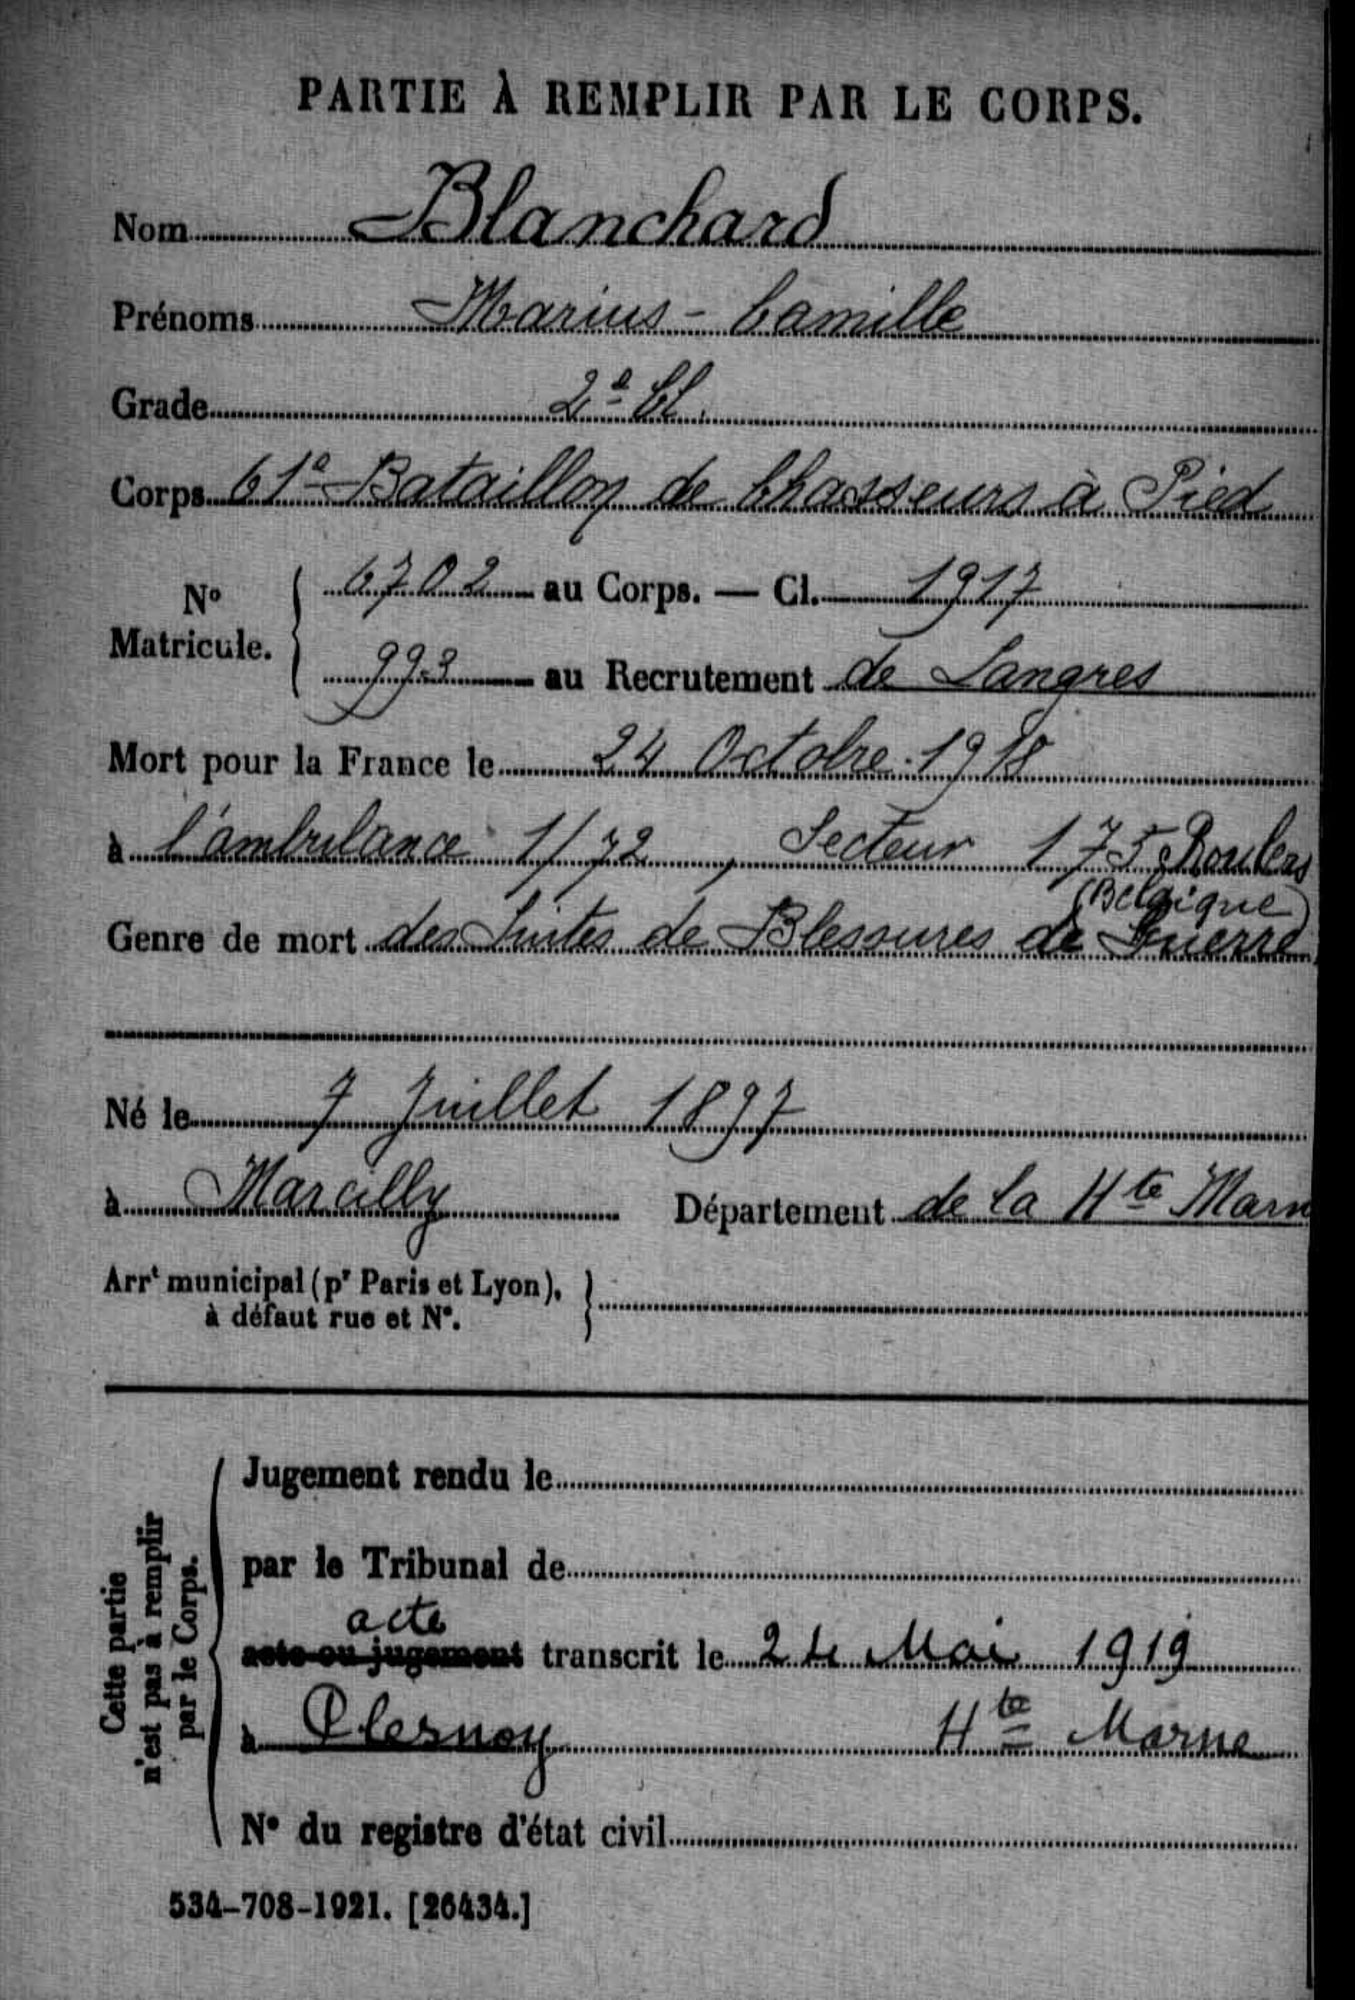 PARTIE À REMPLIR PAR LE CORPS.
Nom Blanchard
Prénoms Marius - Camille
Grade 2e Cl.
Corps 61e Bataillon de Chasseurs à Pied
No Matricule. 6702 au Corps. — Cl. 1917
993 au Recrutement de Langres
Mort pour la France le 24 Octobre 1918
à l'ambulance 1/72, Secteur 175 Roulers
(Belgique)
Genre de mort des Suites de Blessures de Guerre
Né le 7 Juillet 1897
à Marcilly Département de la Hte Marn
Arrt municipal (pr Paris et Lyon),
à défaut rue et N°.
Cette partie
n'est pas à remplir
par le Corps.
Jugement rendu le
par le Tribunal de
acte
acte ou jugement transcrit le 24 Mai 1919
à Plesnoy Hte Marne
N° du registre d'état civil
534-708-1921. [26434.]